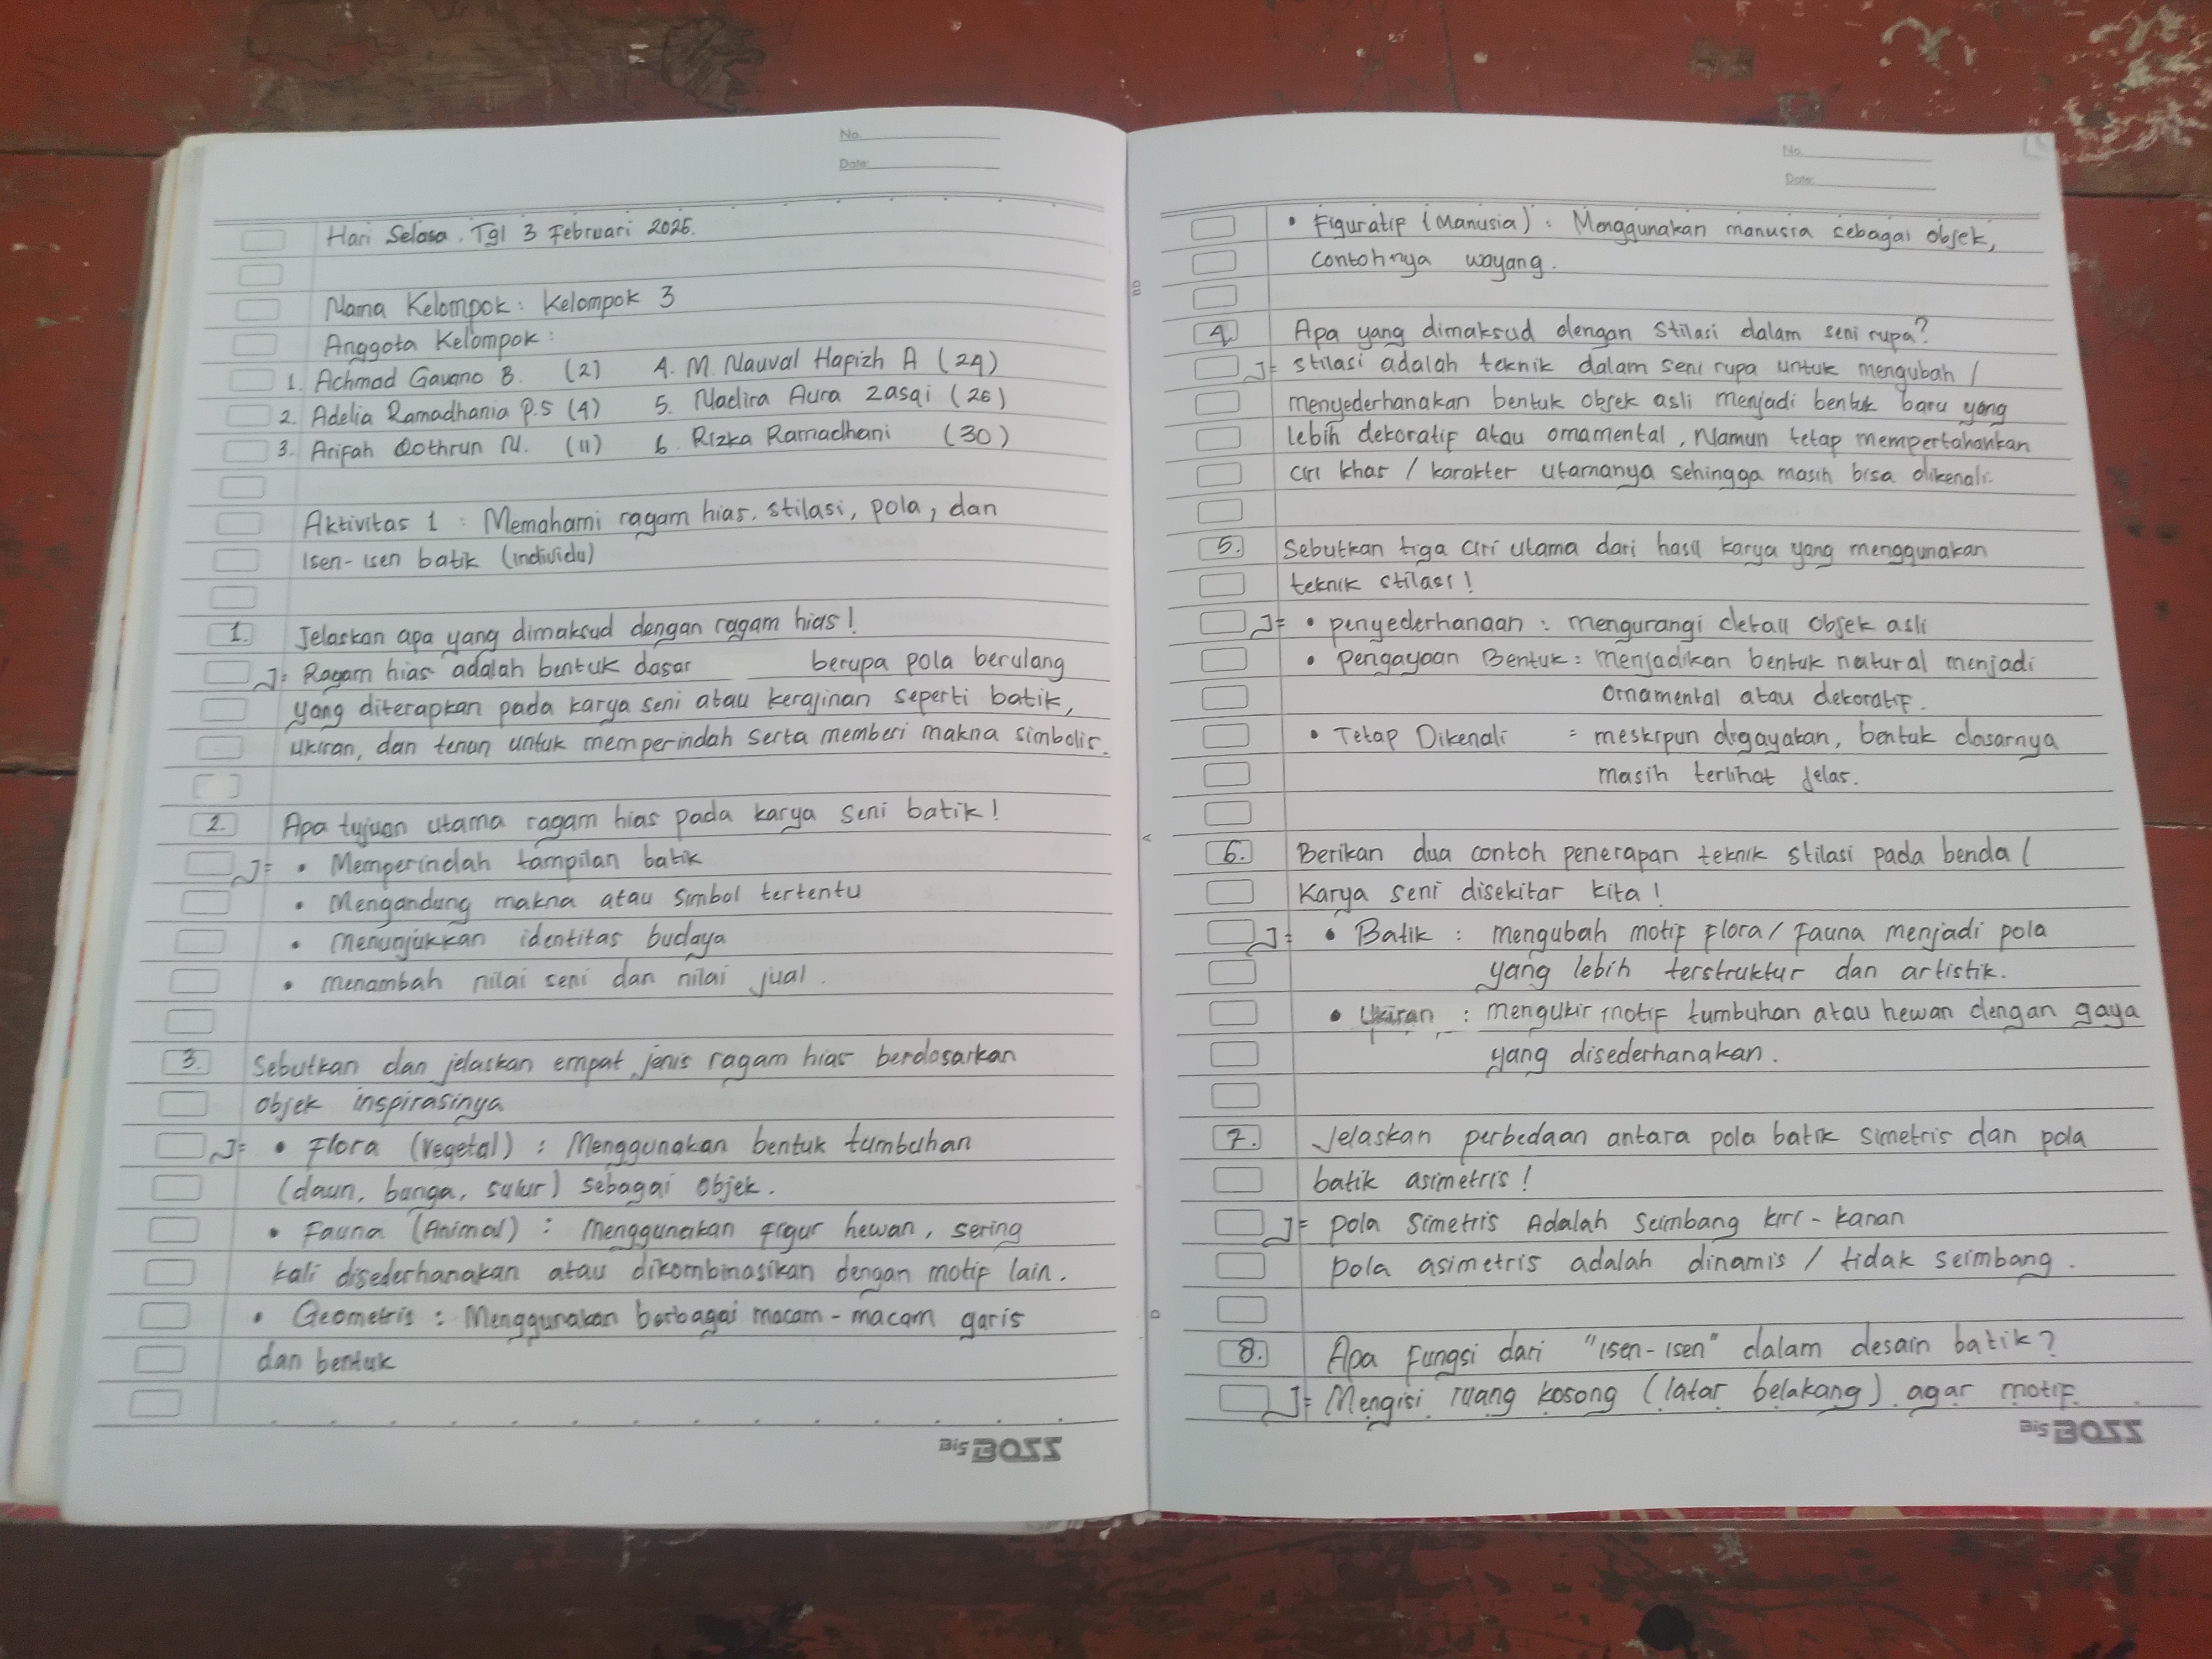 No.
Date:
Hari Selasa. Tgl 3 Februari 2026.
Nama Kelompok : Kelompok 3
Anggota Kelompok :
1. Achmad Gavano B. (2) 4. M. Nauval Hapizh A (24)
2. Adelia Ramadhania P.S (4) 5. Nadira Aura Zasqi (26)
3. Arifah Qothrun N. (11) 6. Rizka Ramadhani (30)
Aktivitas 1 : Memahami ragam hias, stilasi, pola, dan
isen-isen batik (individu)
1. Jelaskan apa yang dimaksud dengan ragam hias!
J= Ragam hias adalah bentuk dasar berupa pola berulang
yang diterapkan pada karya seni atau kerajinan seperti batik,
ukiran, dan tenun untuk memperindah serta memberi makna simbolis.
2. Apa tujuan utama ragam hias pada karya seni batik!
J= • Memperindah tampilan batik
• Mengandung makna atau simbol tertentu
• menunjukkan identitas budaya
• menambah nilai seni dan nilai jual.
3. Sebutkan dan jelaskan empat jenis ragam hias berdasarkan
objek inspirasinya
J= • Flora (Vegetal) : Menggunakan bentuk tumbuhan
(daun, bunga, sulur) sebagai objek.
• Fauna (Animal) : Menggunakan figur hewan, sering
kali disederhanakan atau dikombinasikan dengan motif lain.
• Geometris : Menggunakan berbagai macam-macam garis
dan bentuk
Big BOSS
No.
Date:
• Figuratif (Manusia) : Menggunakan manusia sebagai objek,
contohnya wayang.
4. Apa yang dimaksud dengan stilasi dalam seni rupa?
J= stilasi adalah teknik dalam seni rupa untuk mengubah /
menyederhanakan bentuk objek asli menjadi bentuk baru yang
lebih dekoratif atau ornamental, Namun tetap mempertahankan
ciri khas / karakter utamanya sehingga masih bisa dikenali.
5. Sebutkan tiga ciri utama dari hasil karya yang menggunakan
teknik stilasi!
J= • penyederhanaan : mengurangi detail objek asli
• Pengayaan Bentuk : menjadikan bentuk natural menjadi
ornamental atau dekoratif.
• Tetap Dikenali = meskipun digayakan, bentuk dasarnya
masih terlihat jelas.
6. Berikan dua contoh penerapan teknik stilasi pada benda /
karya seni disekitar kita!
J= • Batik : mengubah motif flora / fauna menjadi pola
yang lebih terstruktur dan artistik.
• Ukiran : mengukir motif tumbuhan atau hewan dengan gaya
yang disederhanakan.
7. Jelaskan perbedaan antara pola batik simetris dan pola
batik asimetris!
J= Pola simetris Adalah seimbang kiri-kanan
Pola asimetris adalah dinamis / tidak seimbang.
8. Apa fungsi dari "isen-isen" dalam desain batik?
J= Mengisi ruang kosong (latar belakang) agar motif
Big BOSS